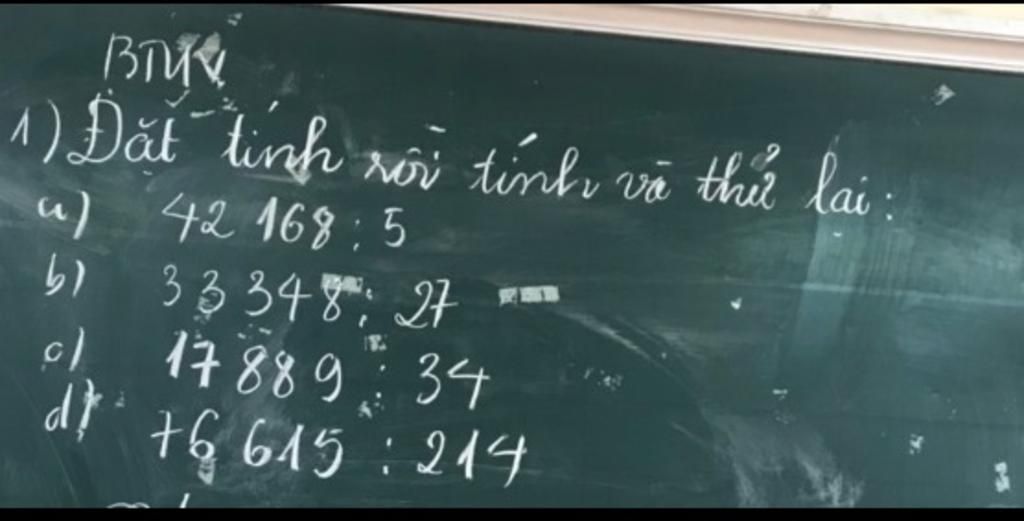 BTVN
1) Đặt tính rồi tính và thử lại:
a) 42 168 : 5
b) 33 348 : 27
c) 17 889 : 34
d) 76 615 : 214